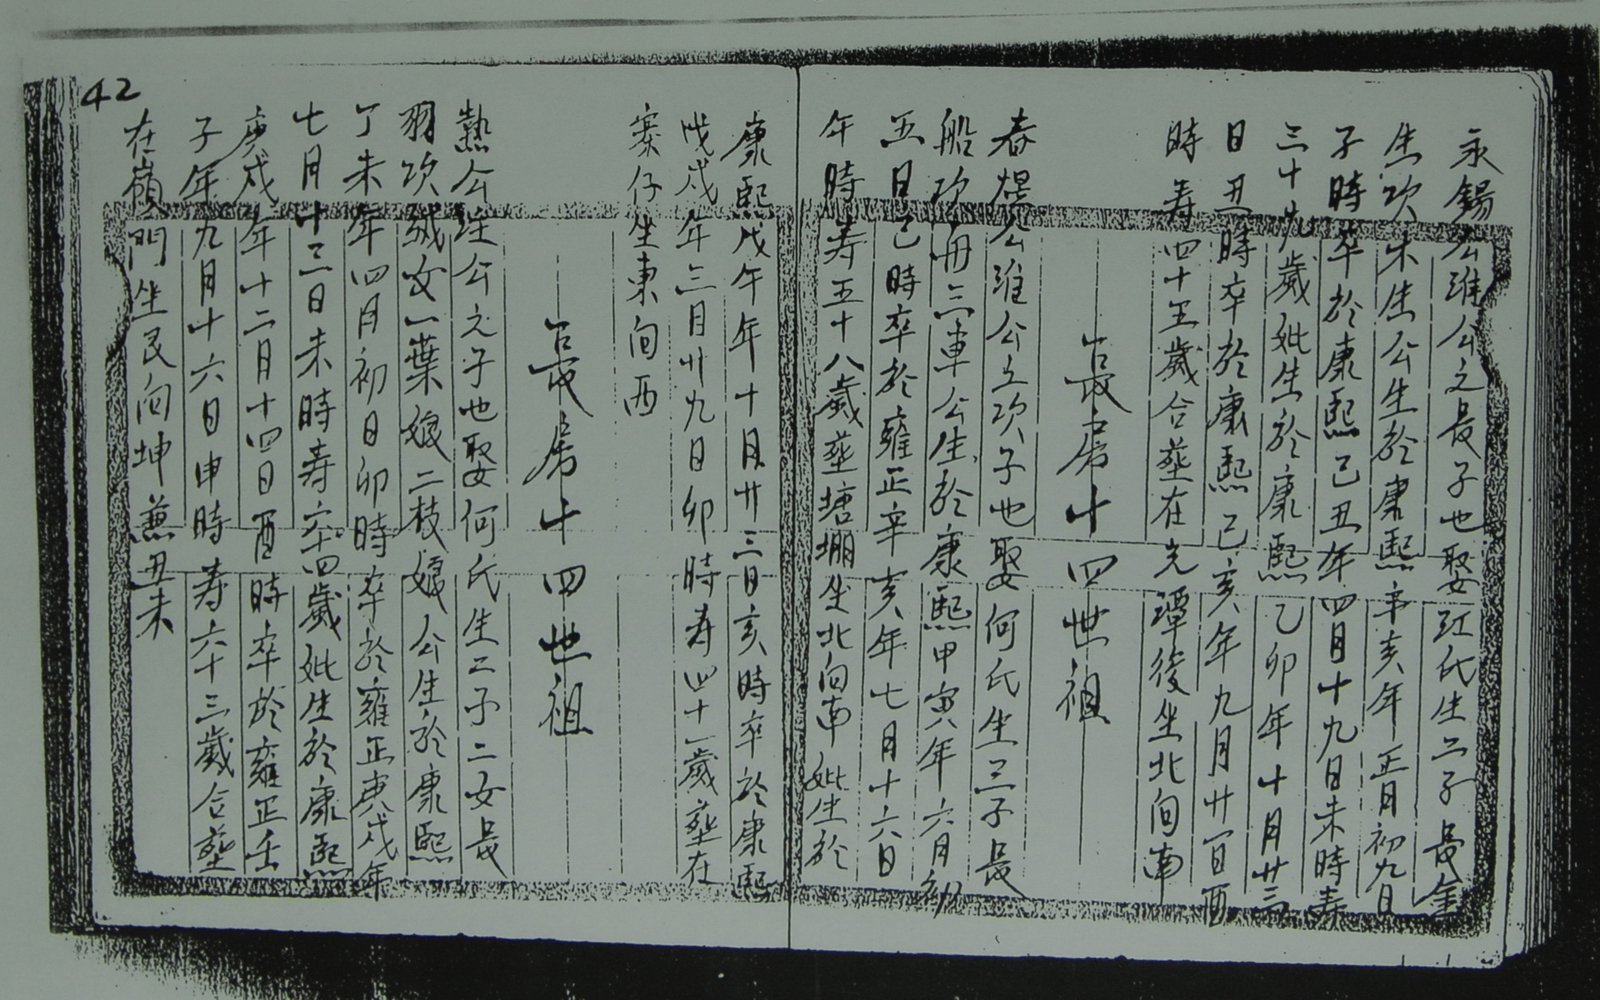 42
永錫公濰公之長子也娶江氏生二子長金
生次木生公生於康熙辛亥年正月初九日
子時卒於康熙己丑年四月十九日未時寿
三十九歲妣生於康熙乙卯年十月廿三
日丑時卒於康熙己亥年九月廿一日酉
時寿四十五歲合塟在光潭後坐北向南
長房十四世祖
春楊公濰公之次子也娶何氏生三子長
船次冊三車公生於康熙甲寅年六月初
五日巳時卒於雍正辛亥年七月十六日
午時寿五十八歲塟塘堋坐北向南妣生於
康熙戊午年十月廿三日亥時卒於康熙
戊戌年三月廿九日卯時寿四十一歲塟在
寨仔坐東向西
長房十四世祖
熱公 公之子也娶何氏生二子二女長
羽次絨女一葉娘二枝娘公生於康熙
丁未年四月初日卯時卒於雍正庚戌年
七月十三日未時寿六十四歲妣生於康熙
庚戌年十二月十四日酉時卒於雍正壬
子年九月十六日申時寿六十三歲合塟
在嶺門坐艮向坤兼丑未